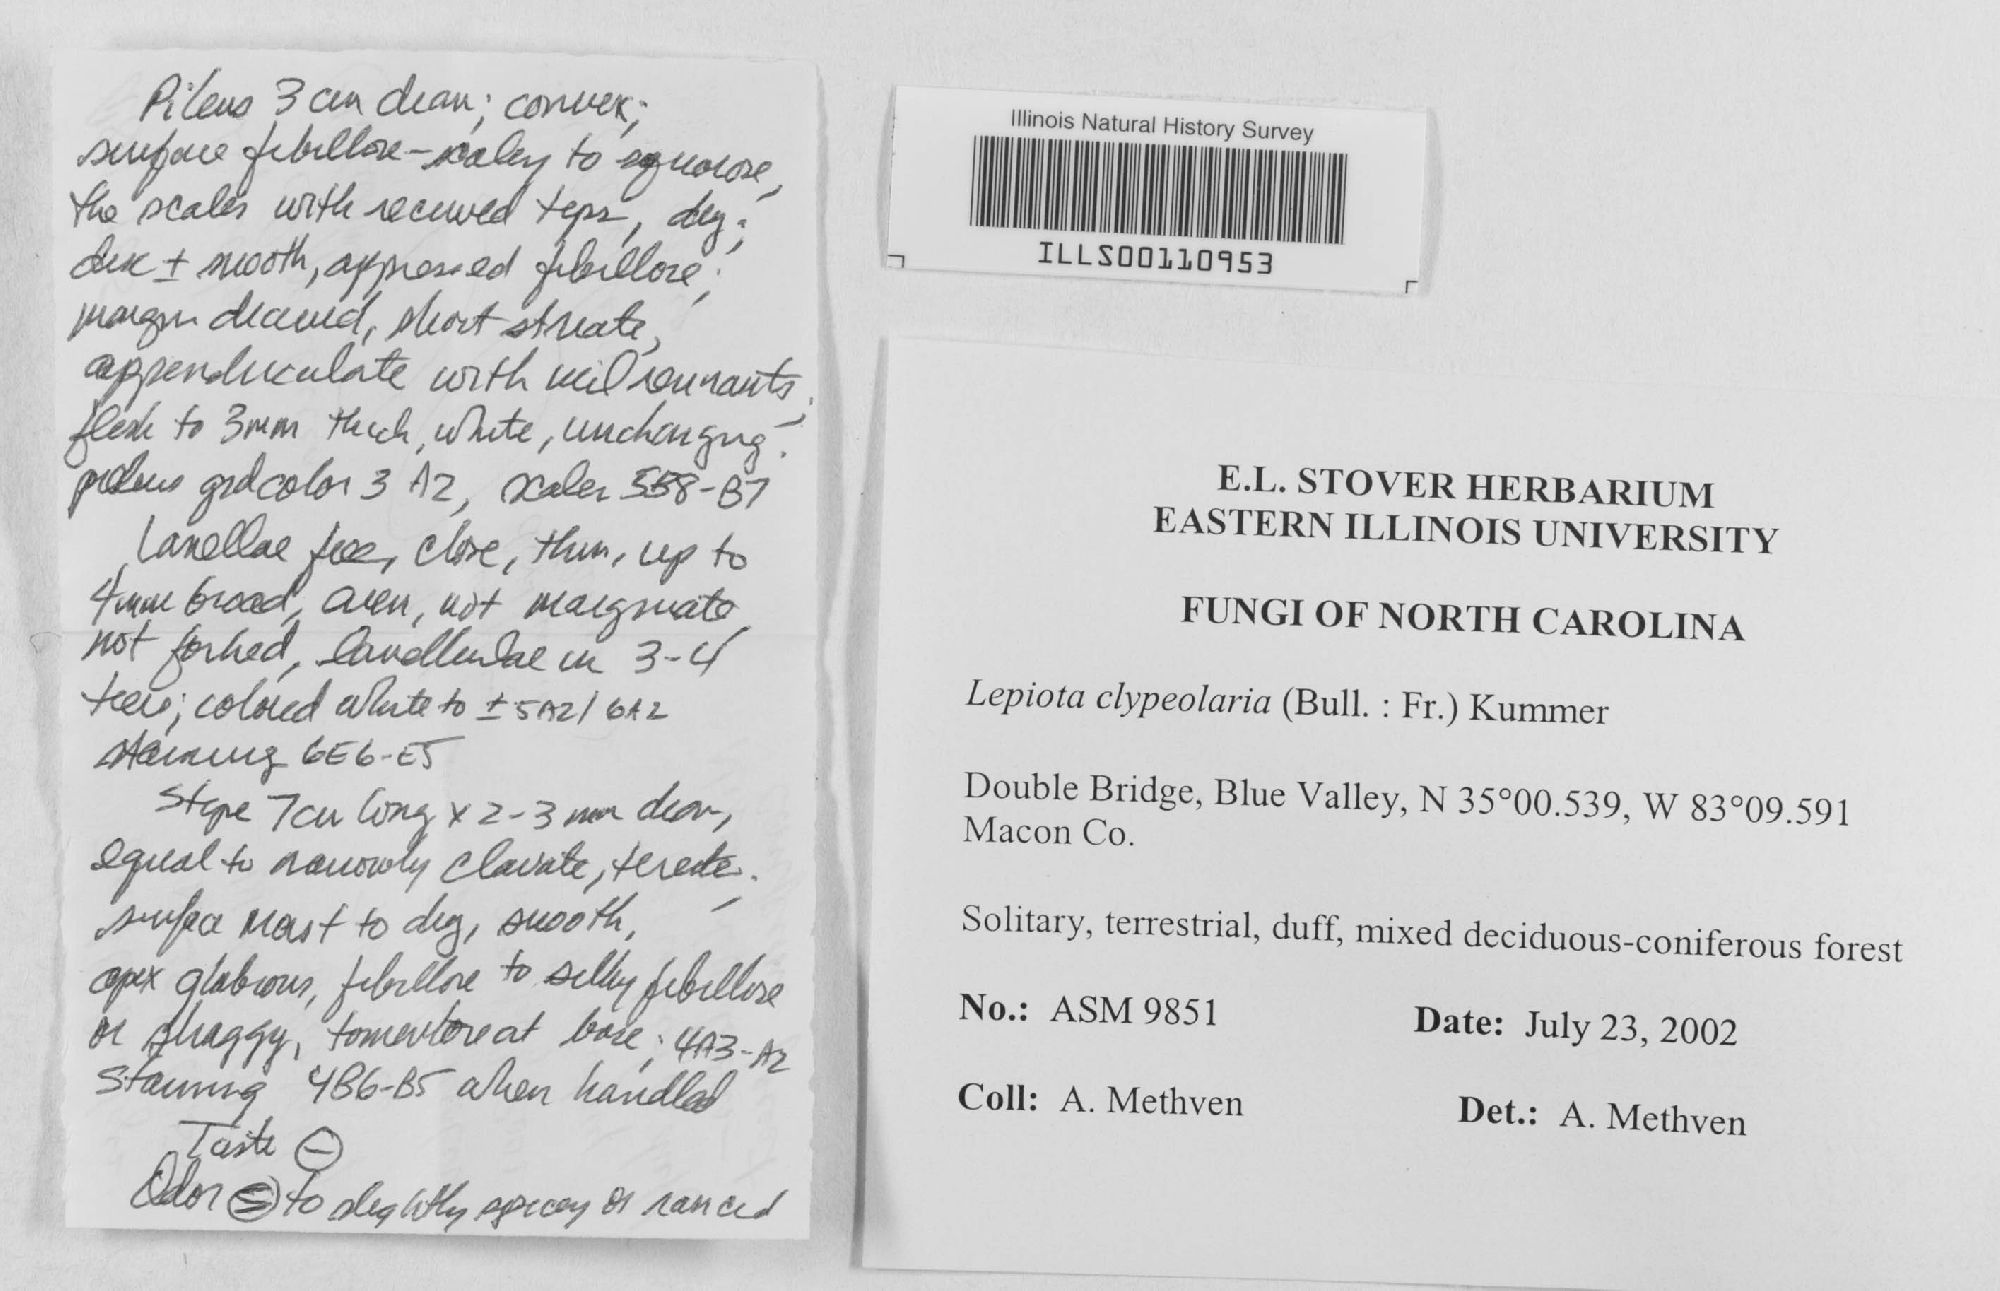 Pileus 3 cm diam; convex;
surface fibrillose-scaley to squarose,
the scales with recurved tips, dry;
disc ± smooth, appressed fibrillose;
margin decurved, short striate,
appendiculate with veil remnants;
flesh to 3mm thick, white, unchanging;
pileus grd color 3 A2, scales 5B8-B7
Lamellae free, close, thin, up to
4mm broad, even, not marginate,
not forked, lamellulae in 3-4
tiers; colored white to ± 5A2/6A2
staining 6E6-E5
Stipe 7cm long x 2-3 mm diam,
equal to narrowly clavate, terete;
surface moist to dry, smooth,
apex glabrous, fibrillose to silky fibrillose
or shaggy, tomentose at base; 4A3-A2
staining 4B6-B5 when handled
Taste ⊖
Odor ⊖ to slightly spicey or rancid
Illinois Natural History Survey
ILLS00110953
E.L. STOVER HERBARIUM
EASTERN ILLINOIS UNIVERSITY
FUNGI OF NORTH CAROLINA
Lepiota clypeolaria (Bull. : Fr.) Kummer
Double Bridge, Blue Valley, N 35°00.539, W 83°09.591
Macon Co.
Solitary, terrestrial, duff, mixed deciduous-coniferous forest
No.: ASM 9851 Date: July 23, 2002
Coll: A. Methven Det.: A. Methven